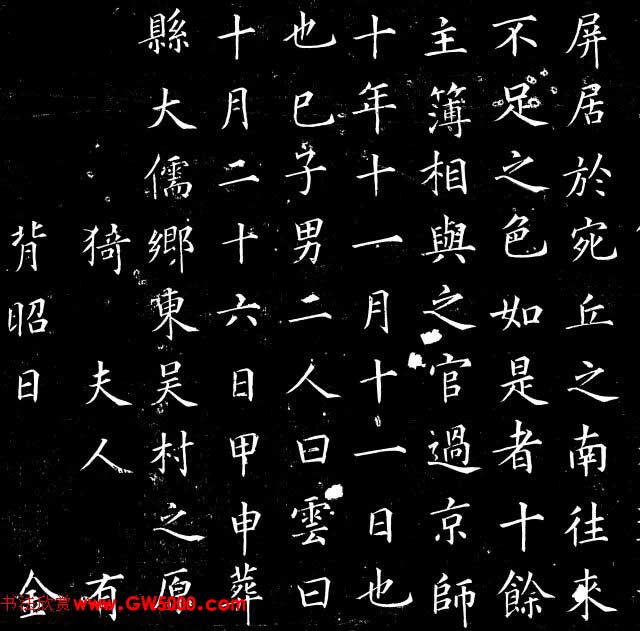 屏居於宛丘之南往來
不足之色如是者十餘
主簿相與之官過京師
十年十一月十一日也
也巳子男二人曰雲曰
十月二十六日甲申葬
縣大儒鄉東吴村之原
猗 夫人 有
背昭日 金
书法欣赏 www.GW5000.com